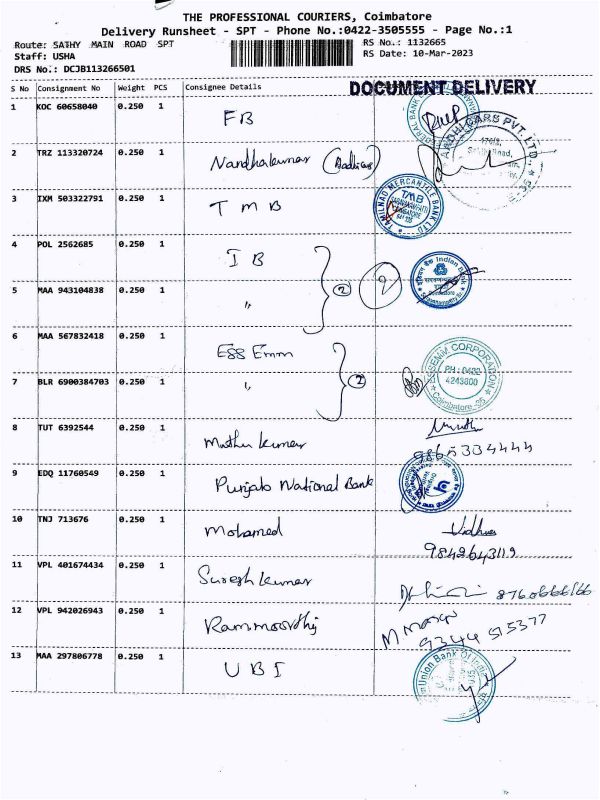 THE PROFESSIONAL COURIERS, Coimbatore
Delivery Runsheet - SPT - Phone No.:0422-3505555 - Page No.:1
Route: SATHY MAIN ROAD SPT
RS No.: 1132665
Staff: USHA
RS Date: 10-Mar-2023
DRS No.: DCJB113266501
S No Consignment No Weight PCS Consignee Details
DOCUMENT DELIVERY
1 KOC 60658040 0.250 1 FB
2 TRZ 113320724 0.250 1 Nandhakumar
AADHI CARS PVT. LTD.
3 IXM 503322791 0.250 1 TMB
TAMILNAD MERCANTILE BANK LTD
TMB
4 POL 2562685 0.250 1 IB
Indian Bank
5 MAA 943104838 0.250 1 "
2 2
6 MAA 567832418 0.250 1 Ess Emm
ESSEMM CORPORATION
PH : 0422
4243800
Coimbatore-35
7 BLR 6900384703 0.250 1 "
2
8 TUT 6392544 0.250 1 Muthu kumar
9865334444
9 EDQ 11760549 0.250 1 Punjab National Bank
10 TNJ 713676 0.250 1 Mohamed
9842643119
11 VPL 401674434 0.250 1 Suresh kumar
8760666166
12 VPL 942026943 0.250 1 Rammoorthy
9344 515377
13 MAA 297806778 0.250 1 UBI
Union Bank Of India